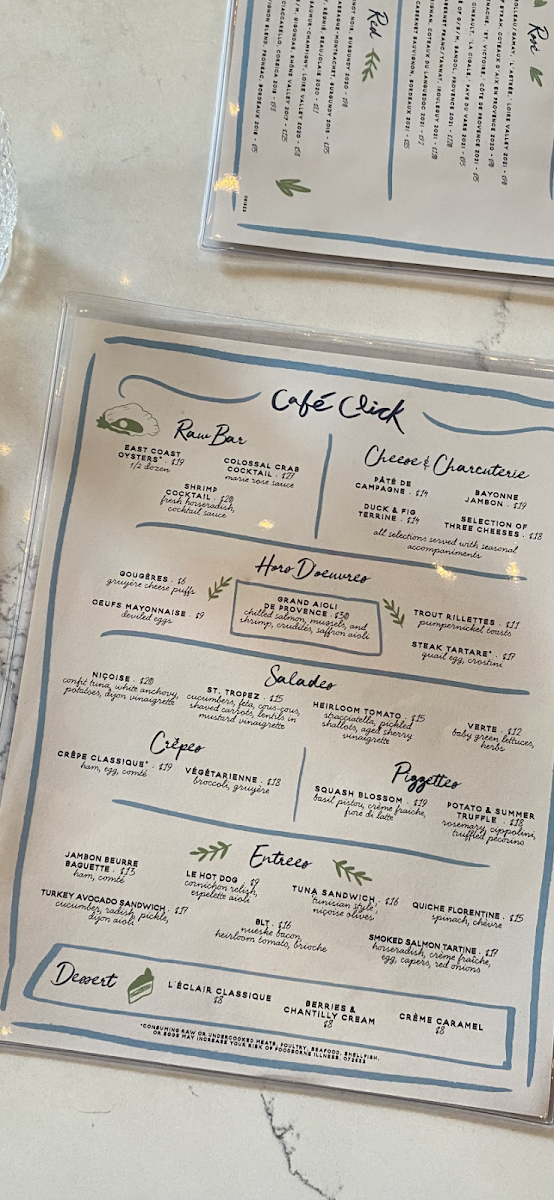 Rosé
Red
Café Click
Raw Bar
EAST COAST
OYSTERS* . $19
1/2 dozen
COLOSSAL CRAB
COCKTAIL . $27
marie rose sauce
SHRIMP
COCKTAIL . $20
fresh horseradish,
cocktail sauce
Cheese & Charcuterie
PÂTÉ DE
CAMPAGNE . $14
BAYONNE
JAMBON . $19
DUCK & FIG
TERRINE . $14
SELECTION OF
THREE CHEESES . $18
all selections served with seasonal
accompaniments
Hors D'oeuvres
GOUGÈRES . $6
gruyère cheese puffs
OEUFS MAYONNAISE . $9
deviled eggs
GRAND AIOLI
DE PROVENCE . $30
chilled salmon, mussels, and
shrimp, crudités, saffron aioli
TROUT RILLETTES . $11
pumpernickel toasts
STEAK TARTARE* . $17
quail egg, crostini
Salades
NIÇOISE . $20
confit tuna, white anchovy,
potatoes, dijon vinaigrette
ST. TROPEZ . $15
cucumbers, feta, cous cous,
shaved carrots, lentils in
mustard vinaigrette
HEIRLOOM TOMATO . $15
stracciatella, pickled
shallots, aged sherry
vinaigrette
VERTE . $12
baby green lettuces,
herbs
Crêpes
CRÊPE CLASSIQUE* . $19
ham, egg, comté
VÉGÉTARIENNE . $18
broccoli, gruyère
Pizzettes
SQUASH BLOSSOM . $19
basil pistou, crème fraîche,
fiore di latte
POTATO & SUMMER
TRUFFLE . $18
rosemary, cippolini,
truffled pecorino
Entrees
JAMBON BEURRE
BAGUETTE . $13
ham, comté
LE HOT DOG . $9
cornichon relish,
espelette aioli
TUNA SANDWICH . $16
'tunisian style',
niçoise olives
QUICHE FLORENTINE . $15
spinach, chèvre
TURKEY AVOCADO SANDWICH . $17
cucumber, radish, pickle,
dijon aioli
BLT . $16
nueske bacon,
heirloom tomato, brioche
SMOKED SALMON TARTINE . $17
horseradish, crème fraîche,
egg, capers, red onions
Dessert
L'ÉCLAIR CLASSIQUE
$8
BERRIES &
CHANTILLY CREAM
$8
CRÈME CARAMEL
$8
*CONSUMING RAW OR UNDERCOOKED MEATS, POULTRY, SEAFOOD, SHELLFISH,
OR EGGS MAY INCREASE YOUR RISK OF FOODBORNE ILLNESS. 072522